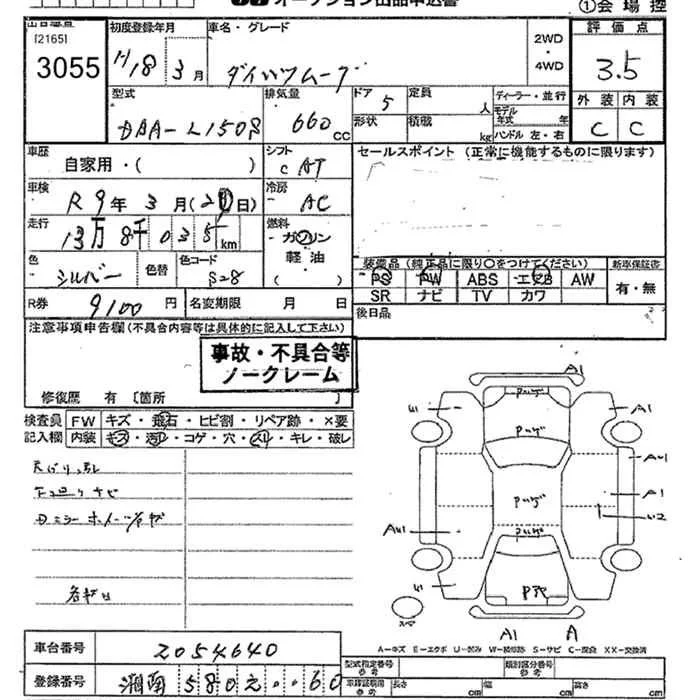 オークション出品申込書
①会場控
[2165]
3055
初度登録年月
H18年3月
車名・グレード
ダイハツムーブ
2WD
・
4WD
評価点
3.5
外装 内装
C C
型式
DBA-L150S
排気量
660cc
ドア 5
形状
定員 人
積載 kg
ディーラー・並行
モデル年式 年
ハンドル 左・右
車歴
自家用・( )
シフト
C AT
セールスポイント (正常に機能するものに限ります)
車検
R9年3月( 日)
冷房
AC
走行
13万8千035km
燃料
ガソリン
軽油
( )
色
シルバー
色替
色コード
S28
装備品 (純正品に限り○をつけてください)
新車保証書
PS PW ABS エアB AW
SR ナビ TV カワ
有・無
R券
9100円
名変期限 月 日
後日品
注意事項申告欄(不具合内容等は具体的に記入して下さい)
事故・不具合等
ノークレーム
修復歴 有 〔箇所 〕
検査員 FW キズ・飛石・ヒビ割・リペア跡・×要
記入欄 内装 キズ・汚レ・コゲ・穴・スレ・キレ・破レ
A1
U1
A1
AU1
A1
U2
AU1
U1
スペア
A1
A
A-キズ E-エクボ U-凹み W-補修跡 S-サビ C-腐食 XX-交換済
車台番号
2054640
登録番号
湘南 580 ・・60
型式指定番号
参考
類別区分番号
参考
車庫証明寸法
参考
長さ cm 幅 cm 高さ cm